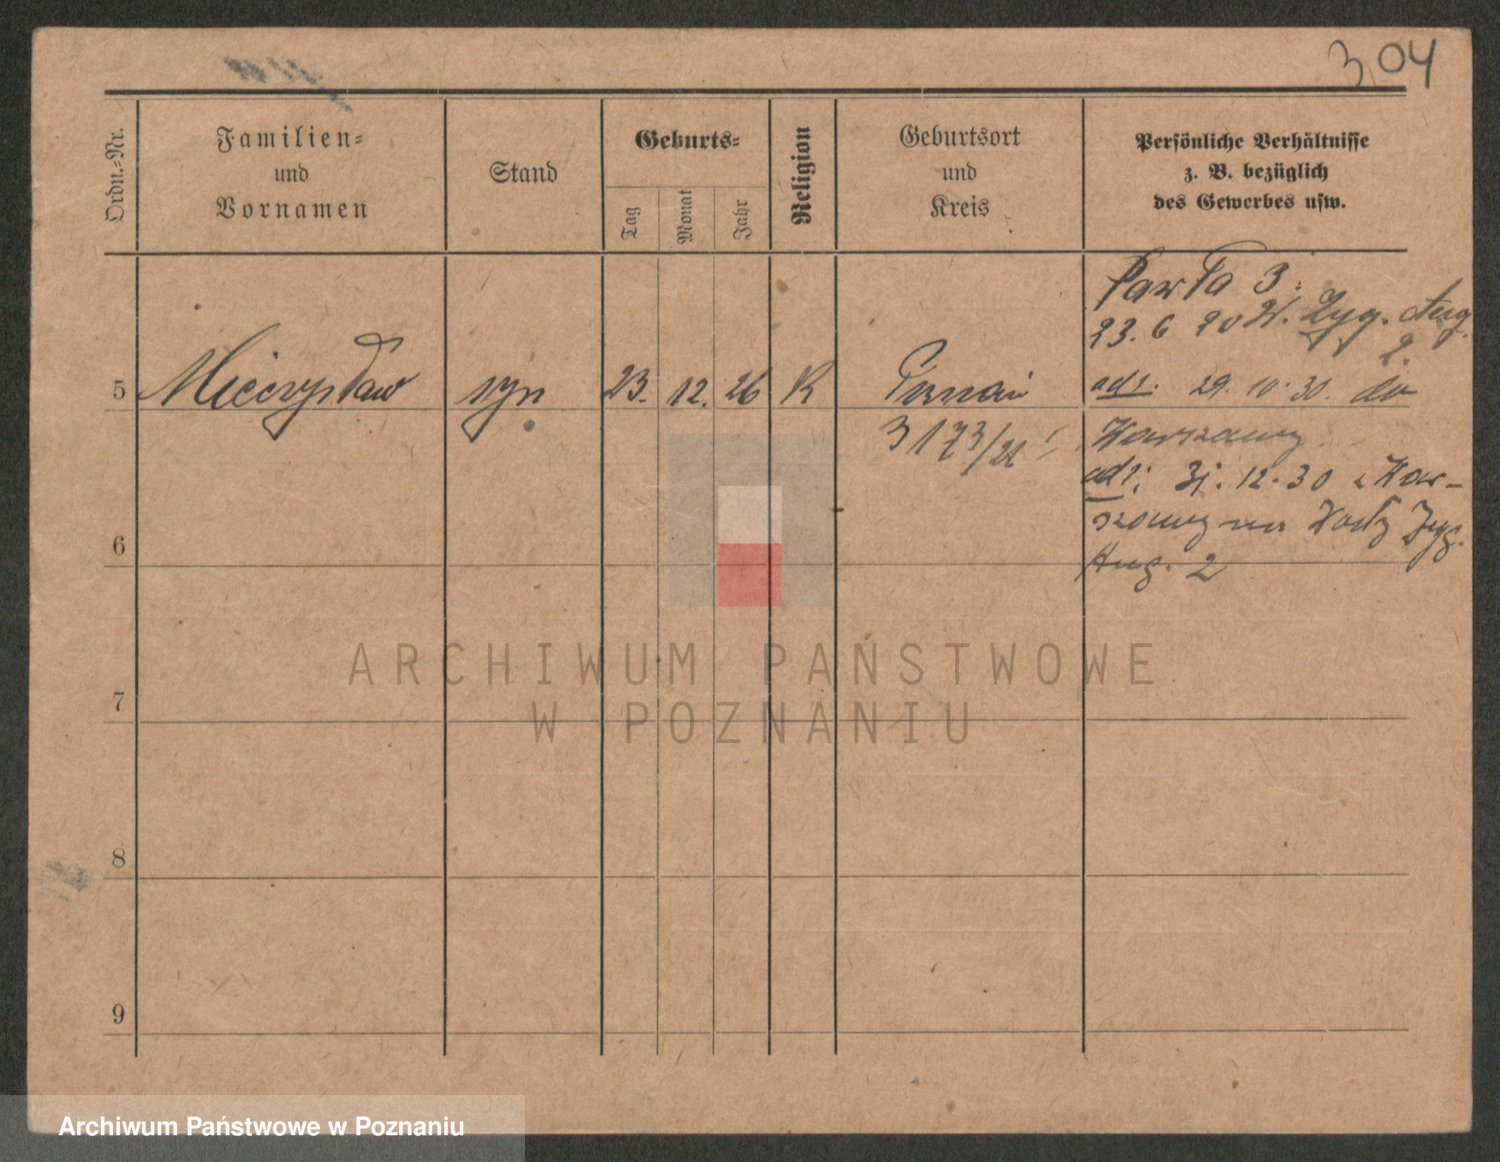 304
Ordn.-Nr.
Familien-
und
Vornamen
Stand
Geburts-
Tag
Monat
Jahr
Religion
Geburtsort
und
Kreis
Persönliche Verhältnisse
z. B. bezüglich
des Gewerbes usw.
3.
23. 6 W. Zyg. Aug.
2.
5 Mieczysław syn 23. 12. 26 K Poznań
ad 1. 29. 10. 30. do
3173/26
Warszawy.
ad 1. 31. 12. 30 z War-
szawy na Zyg.
Aug. 2
6
7
8
9
ARCHIWUM PAŃSTWOWE
W POZNANIU
Archiwum Państwowe w Poznaniu